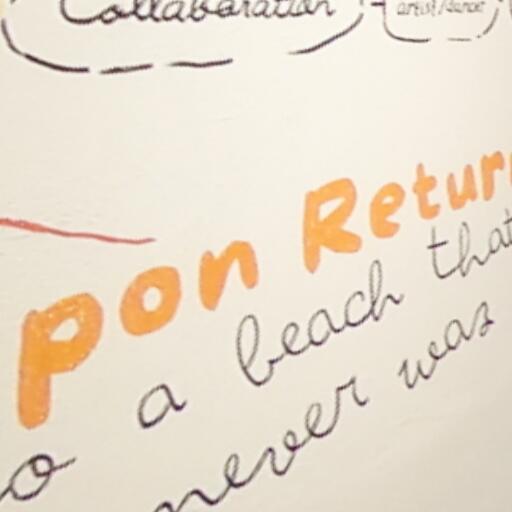 Collaboration
artist/dancer
pon Return
o a beach that
never was